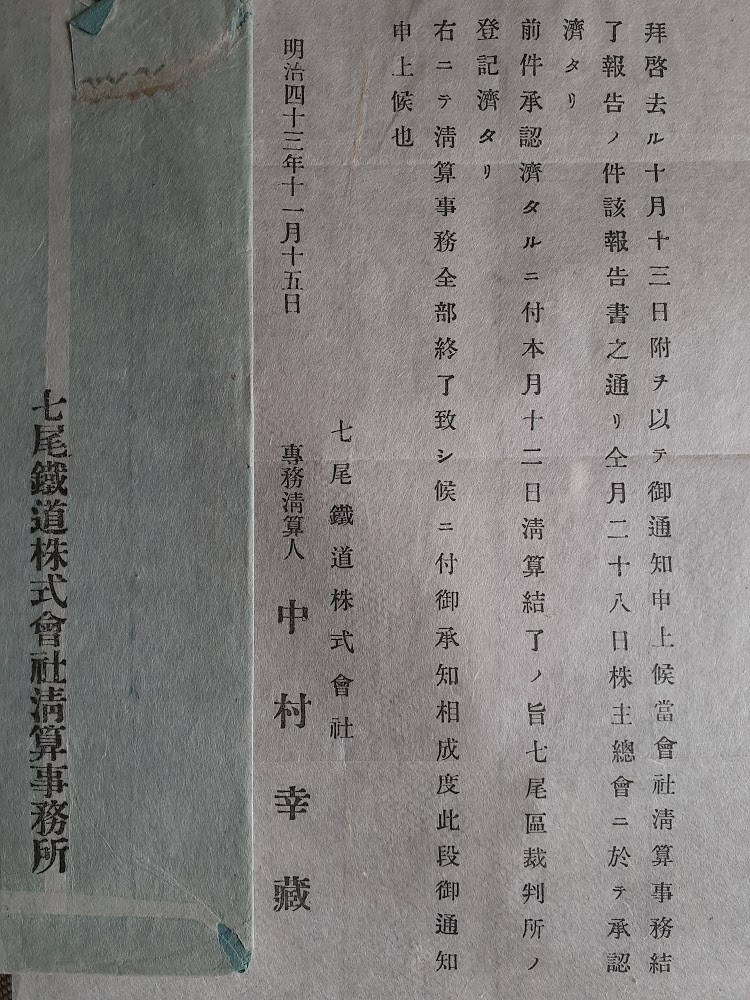 拜啓去ル十月十三日附ヲ以テ御通知申上候當會社淸算事務結
了報告ノ件該報告書之通リ仝月二十八日株主總會ニ於テ承認
濟タリ
前件承認濟タルニ付本月十二日淸算結了ノ旨七尾區裁判所ノ
登記濟タリ
右ニテ淸算事務全部終了致シ候ニ付御承知相成度此段御通知
申上候也
七尾鐵道株式會社
明治四十三年十一月十五日
專務淸算人 中村幸藏
七尾鐵道株式會社淸算事務所